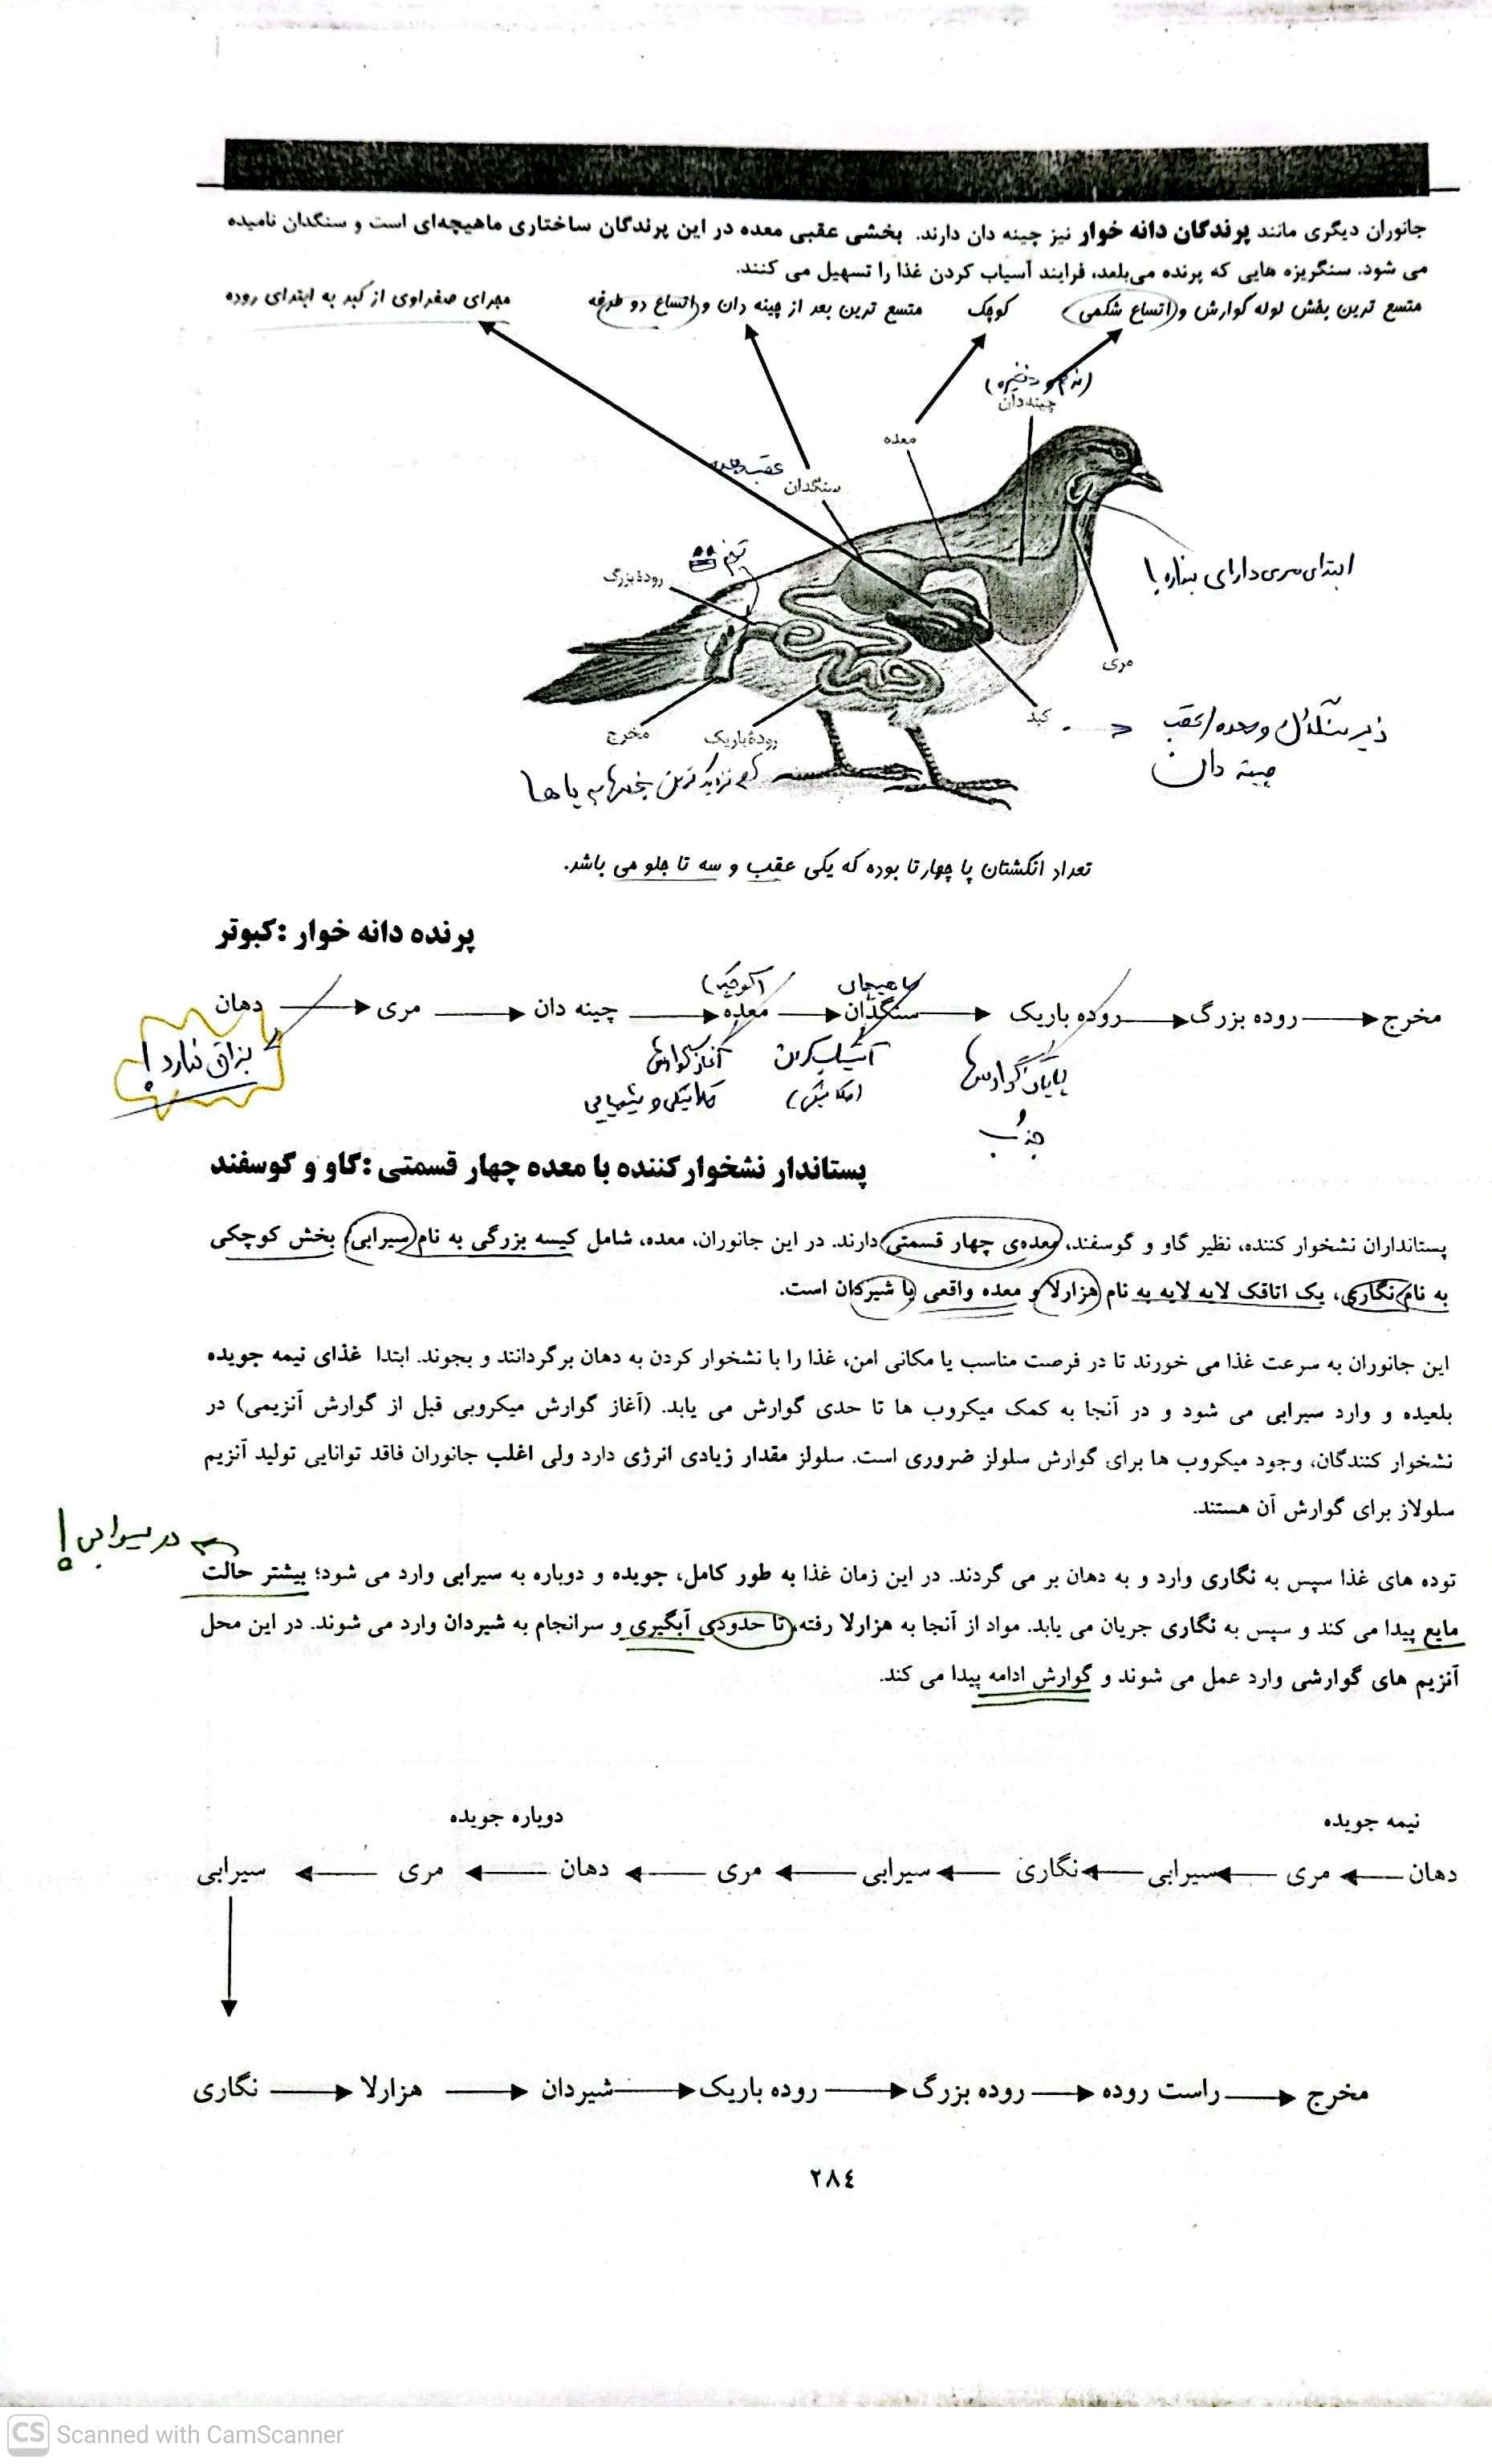 جانوران دیگری مانند پرندگان دانه خوار نیز چینه دان دارند. بخشی عقبی معده در این پرندگان ساختاری ماهیچه‌ای است و سنگدان نامیده
می شود. سنگریزه هایی که پرنده می‌بلعد، فرایند آسیاب کردن غذا را تسهیل می کنند.
متسع ترین بخش لوله گوارش و (اتساع شکمی)
کوچک
متسع ترین بعد از چینه دان و (اتساع دو طرفه
مجرای صفراوی از کبد به ابتدای روده
(نرم و ذخیره)
چینه‌دان
معده
سنگدان
تخم
رودهٔ بزرگ
ابتدای مری دارای بنداره!
مری
کبد
زیر سنگدان و معده / عقب
چینه دان
مخرج
رودهٔ باریک
نزدیک ترین بخش به پاها
تعداد انگشتان پا چهار تا بوده که یکی عقب و سه تا جلو می باشد.
پرنده دانه خوار :کبوتر
(کوچک)
ماهیچه‌ای
دهان مری چینه دان معده سنگدان روده باریک روده بزرگ مخرج
بزاق ندارد!
آغاز گوارش
مکانیکی و شیمیایی
آسیاب کردن
(مکانیکی)
پایان گوارش
و
جذب
پستاندار نشخوار کننده با معده چهار قسمتی :گاو و گوسفند
پستانداران نشخوار کننده، نظیر گاو و گوسفند، معده‌ی چهار قسمتی دارند. در این جانوران، معده، شامل کیسه بزرگی به نام سیرابی، بخش کوچکی
به نام نگاری، یک اتاقک لایه لایه به نام هزارلا و معده واقعی یا شیردان است.
این جانوران به سرعت غذا می خورند تا در فرصت مناسب یا مکانی امن، غذا را با نشخوار کردن به دهان برگردانند و بجوند. ابتدا غذای نیمه جویده
بلعیده و وارد سیرابی می شود و در آنجا به کمک میکروب ها تا حدی گوارش می یابد. (آغاز گوارش میکروبی قبل از گوارش آنزیمی) در
نشخوار کنندگان، وجود میکروب ها برای گوارش سلولز ضروری است. سلولز مقدار زیادی انرژی دارد ولی اغلب جانوران فاقد توانایی تولید آنزیم
سلولاز برای گوارش آن هستند.
در سیرابی!
توده های غذا سپس به نگاری وارد و به دهان بر می گردند. در این زمان غذا به طور کامل، جویده و دوباره به سیرابی وارد می شود؛ بیشتر حالت
مایع پیدا می کند و سپس به نگاری جریان می یابد. مواد از آنجا به هزارلا رفته، تا حدودی آبگیری و سرانجام به شیردان وارد می شوند. در این محل
آنزیم های گوارشی وارد عمل می شوند و گوارش ادامه پیدا می کند.
نیمه جویده
دوباره جویده
دهان مری سیرابی نگاری سیرابی مری دهان مری سیرابی
نگاری هزارلا شیردان روده باریک روده بزرگ راست روده مخرج
۲۸٤
CS Scanned with CamScanner